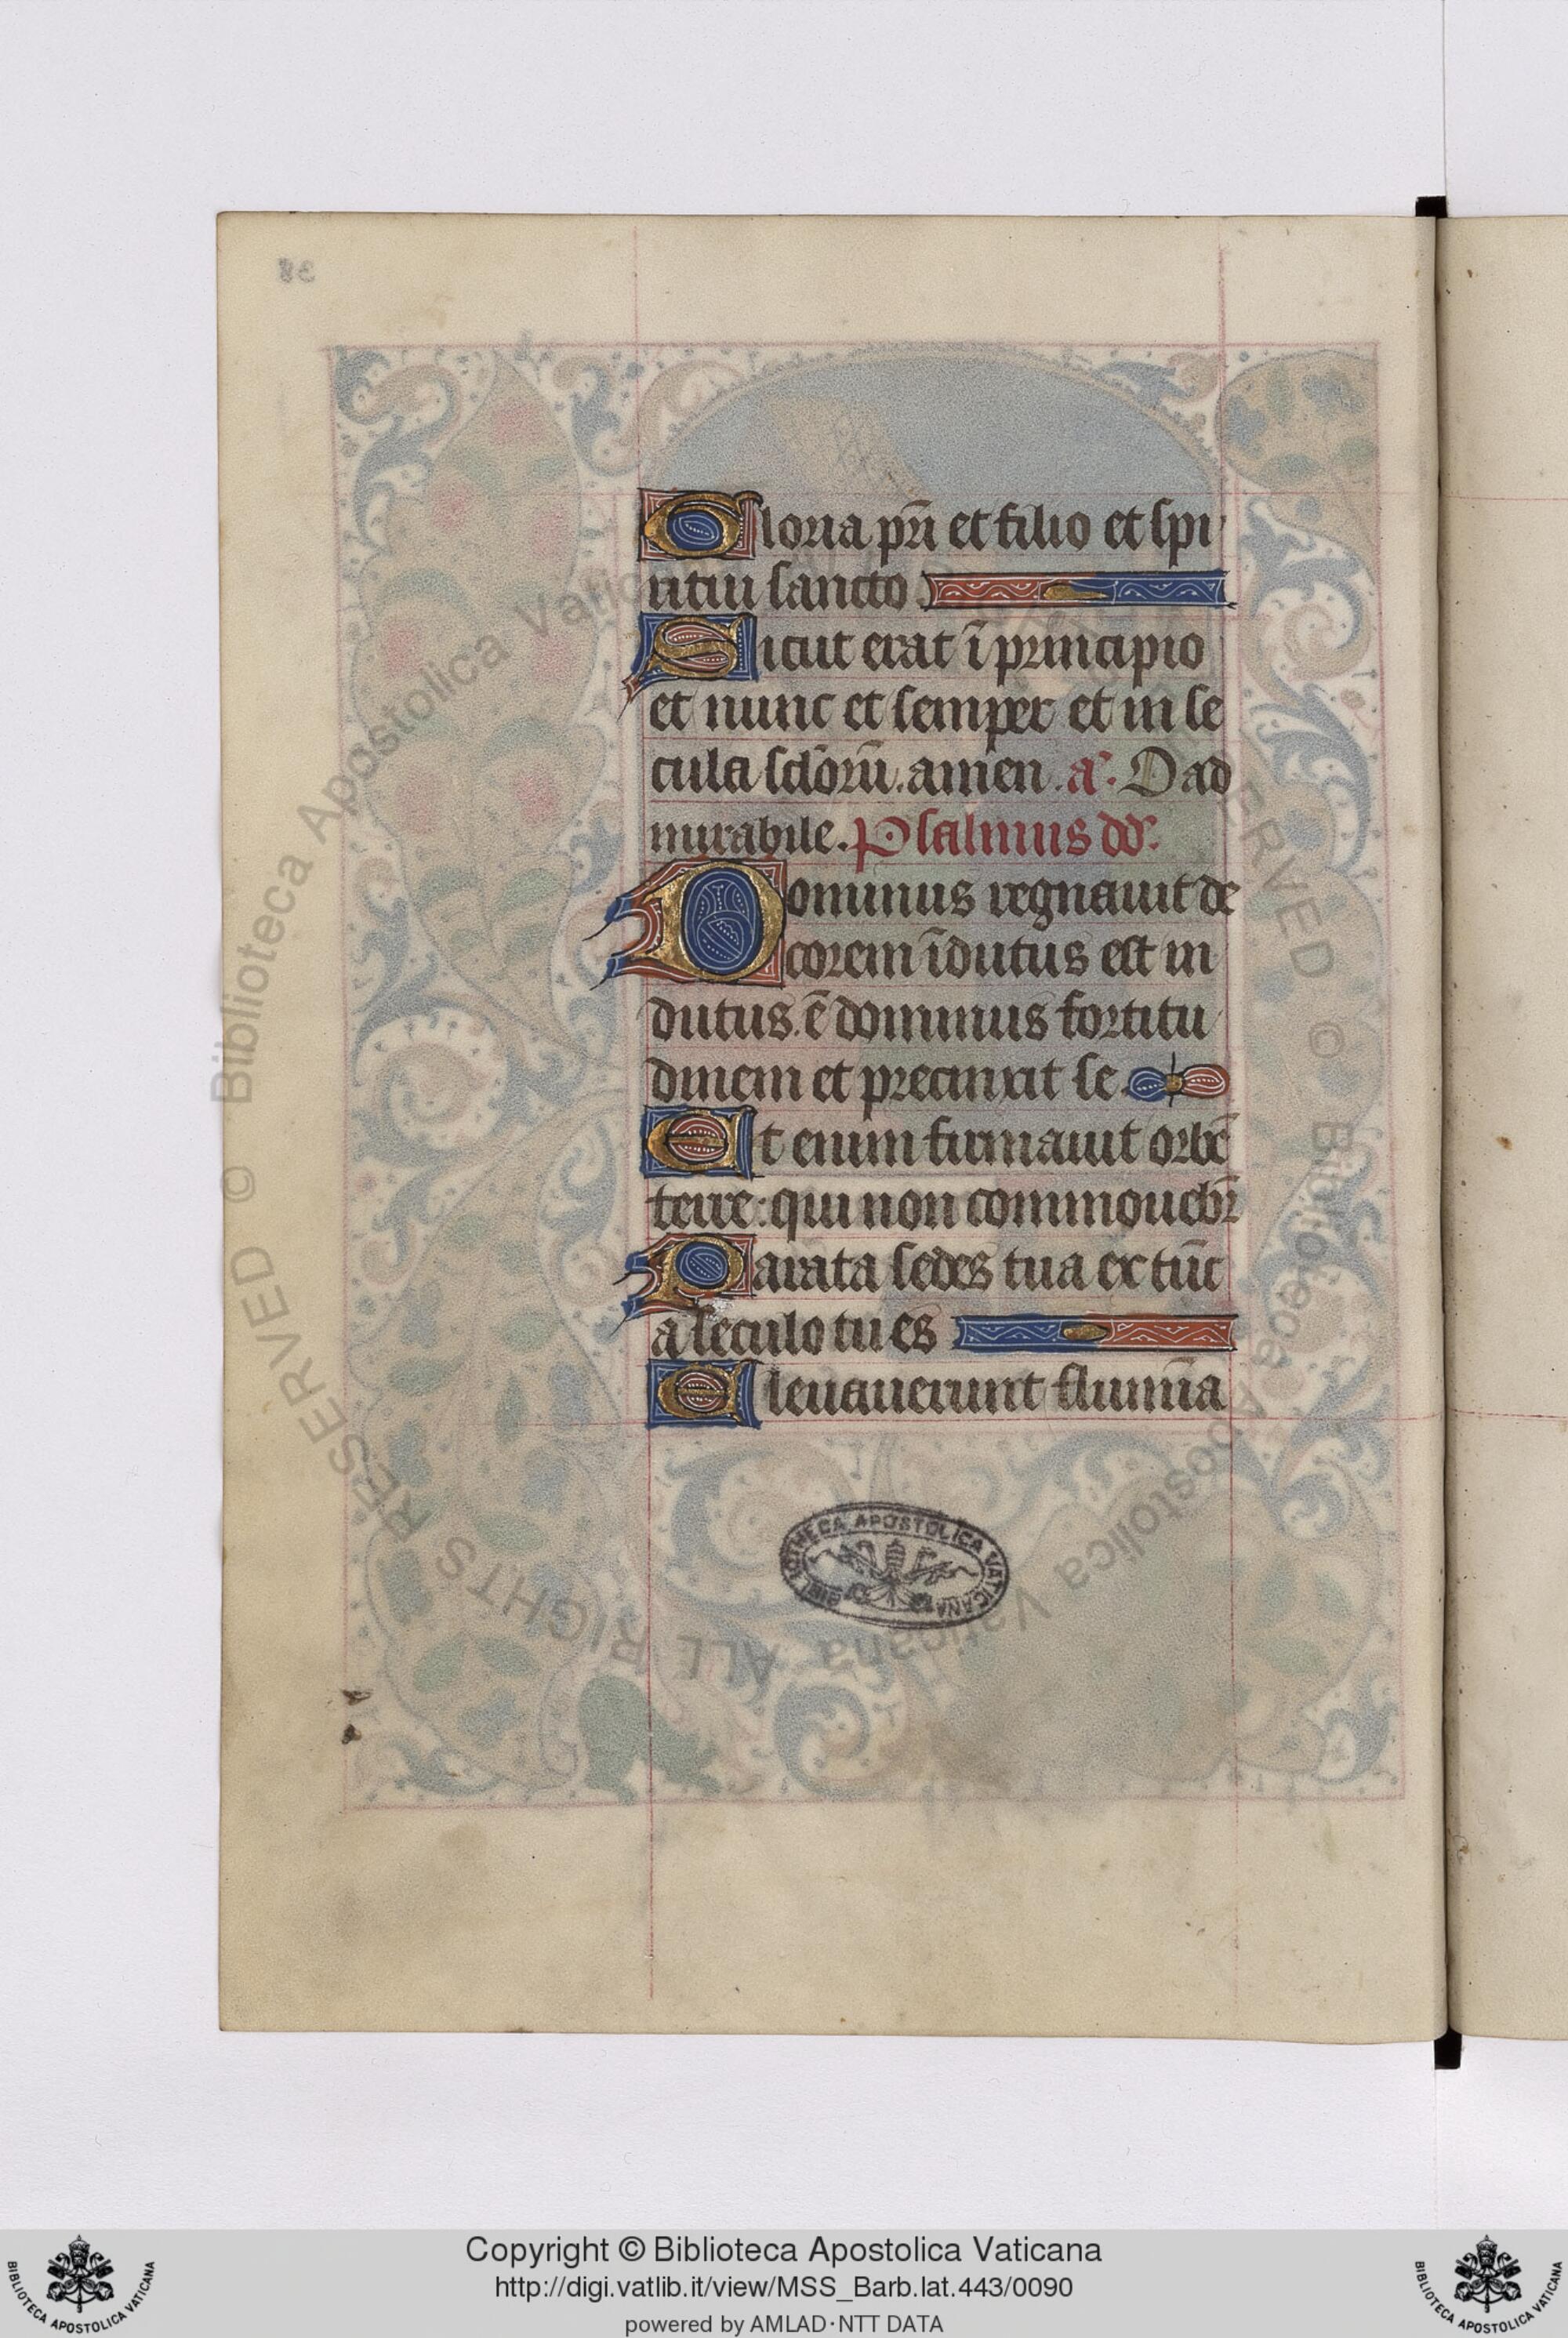 Gloria pr̄i et filio et spi
ritui sancto
Sicut erat ī principio
et nunc et semper et in se
cula sclōrū. amen. a᷑. O ad
mirabile. Psalmus dd᷑.
Dominus regnauit de
corem īdutus est in
dutus. ē dominus fortitu
dinem et precinxit se.
Et enim firmauit orbē
terre: qui non commouebr̄
Parata sedes tua ex tūc
a seculo tu es
Eleuauerunt flumīa
BIBLIOTHECA APOSTOLICA VATICANA
© Biblioteca Apostolica Vaticana ALL RIGHTS RESERVED
Copyright © Biblioteca Apostolica Vaticana
http://digi.vatlib.it/view/MSS_Barb.lat.443/0090
powered by AMLAD·NTT DATA
BIBLIOTECA APOSTOLICA VATICANA
BIBLIOTECA APOSTOLICA VATICANA